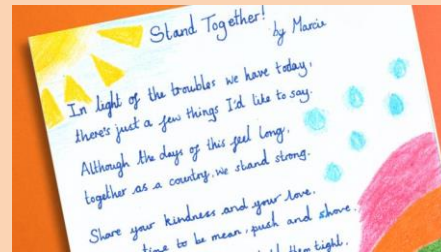 Stand Together!
by Marcie
In light of the troubles we have today,
there's just a few things I'd like to say.
Although the days of this feel long,
together as a country, we stand strong.
Share your kindness and your love,
time to be mean, push and shove.
them tight,